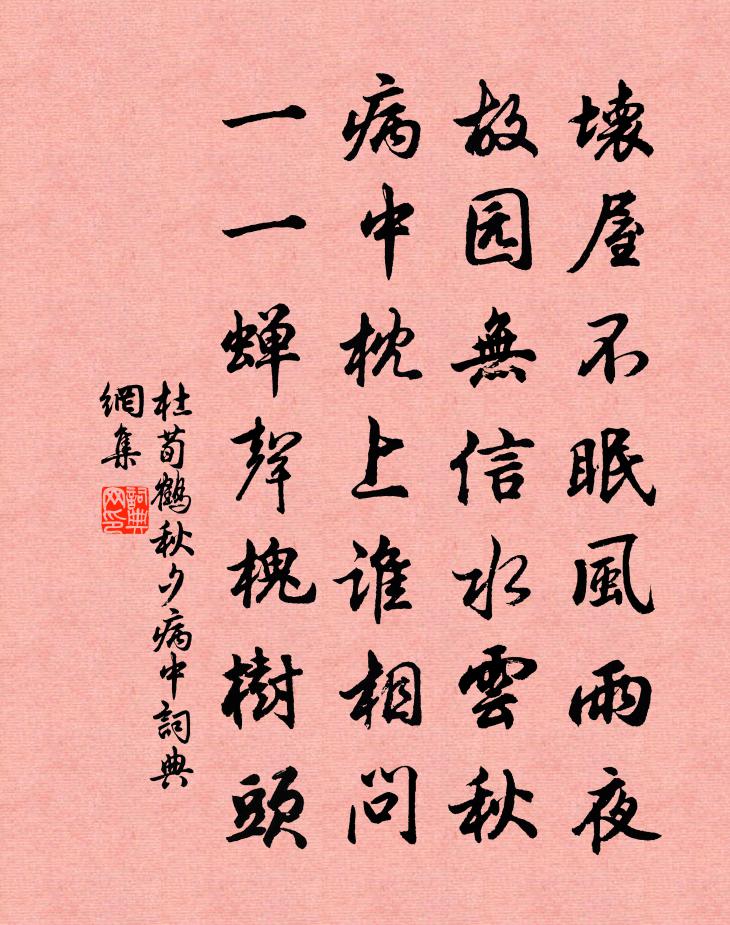 壞屋不眠風雨夜
故园無信水雲秋
病中枕上誰相問
一一蝉聲槐樹頭
杜荀鶴秋夕病中詞典
網集
詞典
网印